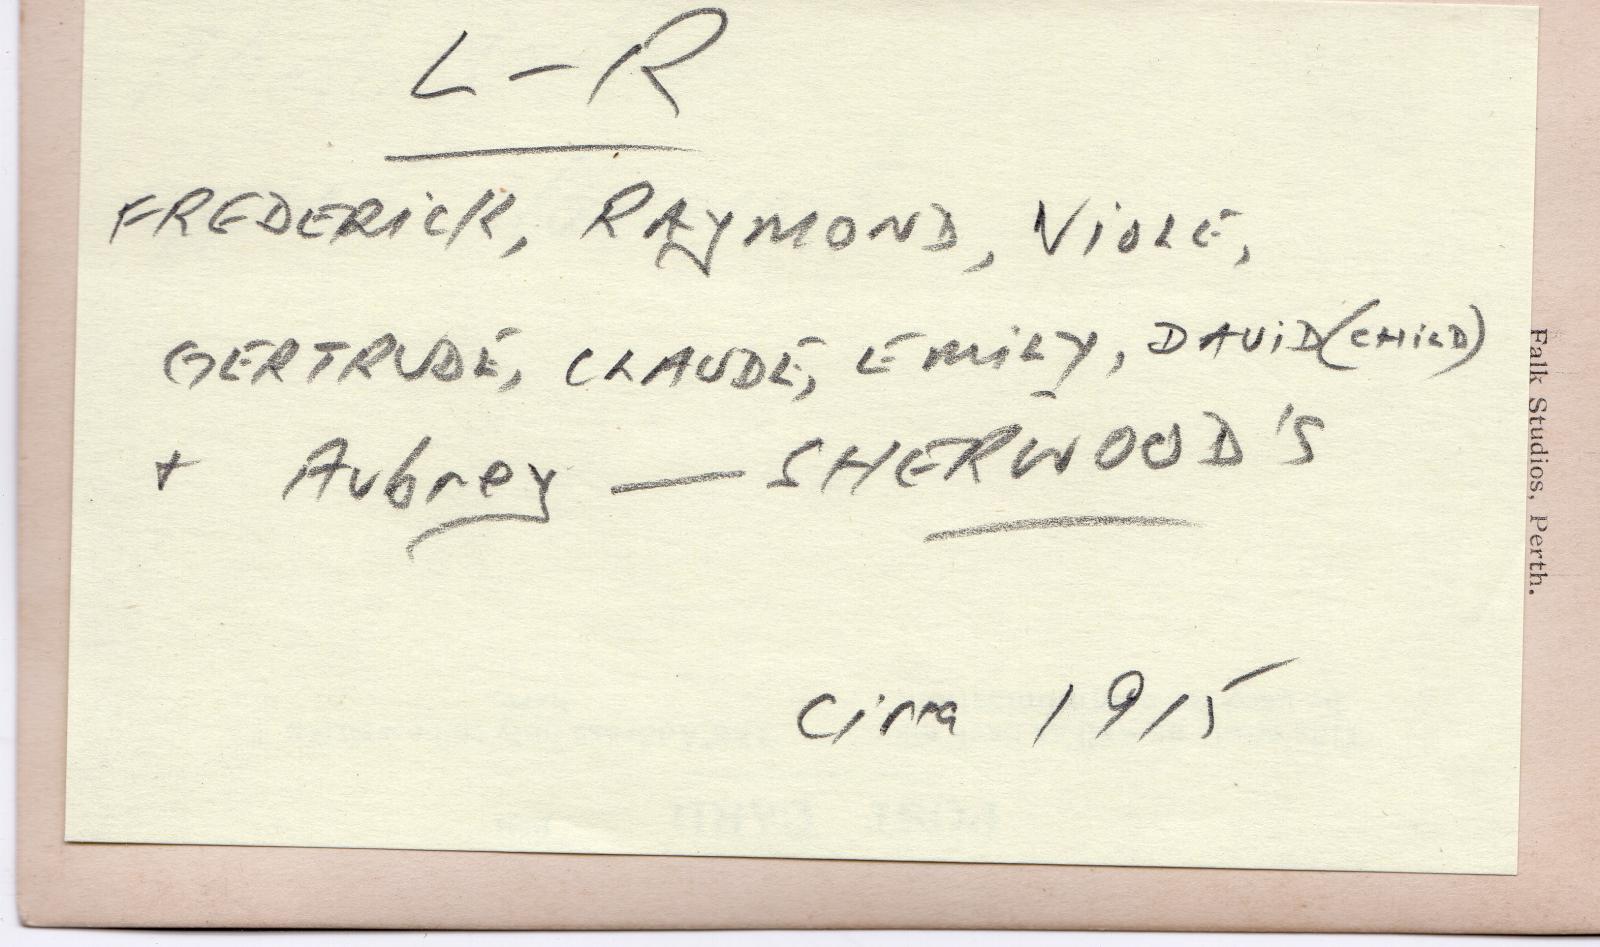 L-R
FREDERICK, RAYMOND, VIOLE,
GERTRUDE, CLAUDE, EMILY, DAVID (CHILD)
+ Aubrey — SHERWOOD'S
Circa 1915
Falk Studios, Perth.